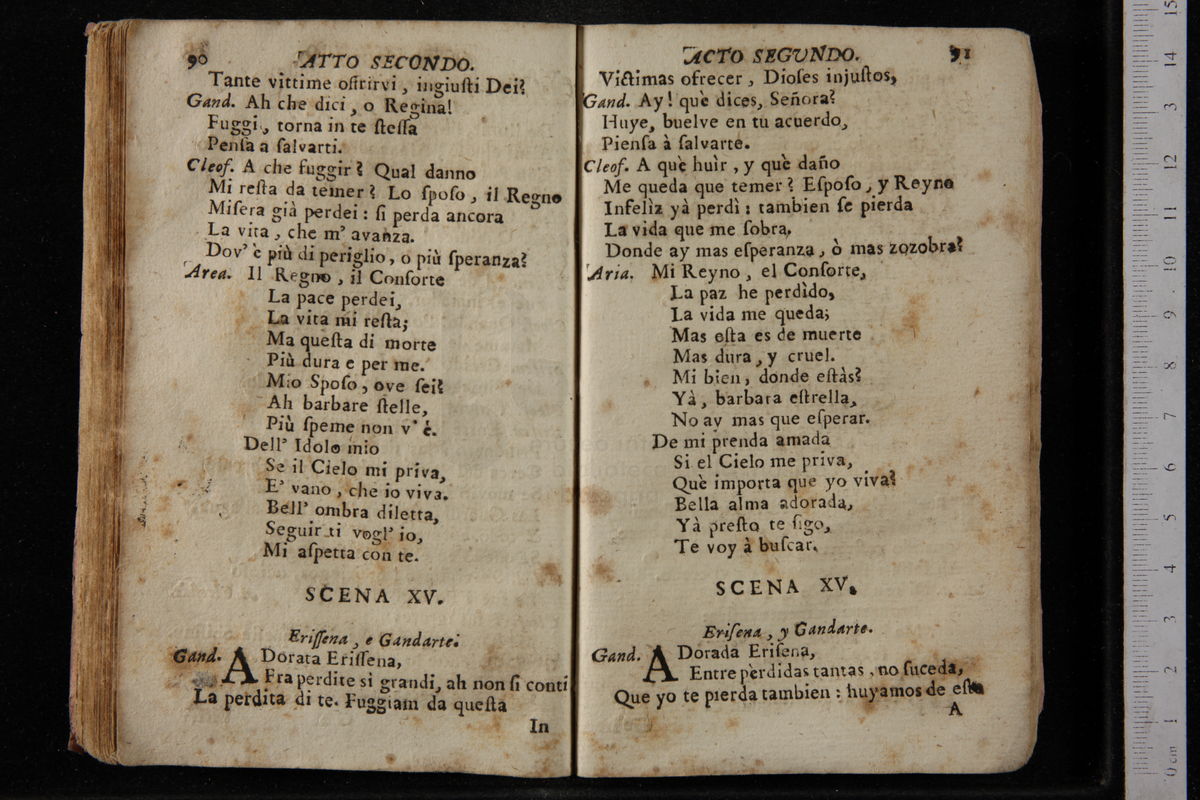 90 ATTO SECONDO.
Tante vittime offrirvi, ingiuſti Dei?
Gand. Ah che dici, o Regina!
Fuggi, torna in te ſteſſa
Penſa a ſalvarti.
Cleof. A che fuggir? Qual danno
Mi reſta da temer? Lo ſpoſo, il Regno
Miſera già perdei: ſi perda ancora
La vita, che m' avanza.
Dov' è più di periglio, o più ſperanza?
Area. Il Regno, il Conſorte
La pace perdei,
La vita mi reſta;
Ma queſta di morte
Più dura e per me.
Mio Spoſo, ove ſei?
Ah barbare ſtelle,
Più ſpeme non v' é.
Dell' Idolo mio
Se il Cielo mi priva,
E' vano, che io viva.
Bell' ombra diletta,
Seguir ti vogl' io,
Mi aſpetta con te.
SCENA XV.
Eriſſena, e Gandarte.
Gand. ADorata Eriſſena,
Fra perdite sì grandi, ah non ſi conti
La perdita di te. Fuggiam da queſta
In
ACTO SEGUNDO. 91
Victimas ofrecer, Dioſes injuſtos,
Gand. Ay! què dices, Señora?
Huye, buelve en tu acuerdo,
Pienſa à ſalvarte.
Cleof. A què huìr, y què daño
Me queda que temer? Eſpoſo, y Reyno
Infelìz yà perdì: tambien ſe pierda
La vida que me ſobra.
Donde ay mas eſperanza, ò mas zozobra?
Aria. Mi Reyno, el Conſorte,
La paz he perdìdo,
La vida me queda;
Mas eſta es de muerte
Mas dura, y cruel.
Mi bien, donde eſtàs?
Yà, barbara eſtrella,
No ay mas que eſperar.
De mi prenda amada
Si el Cielo me priva,
Què importa que yo viva?
Bella alma adorada,
Yà preſto te ſigo,
Te voy à buſcar.
SCENA XV.
Eriſena, y Gandarte.
Gand. ADorada Eriſena,
Entre pèrdidas tantas, no ſuceda,
Que yo te pierda tambien: huyamos de eſta
A
0 cm 1 2 3 4 5 6 7 8 9 10 11 12 13 14 15